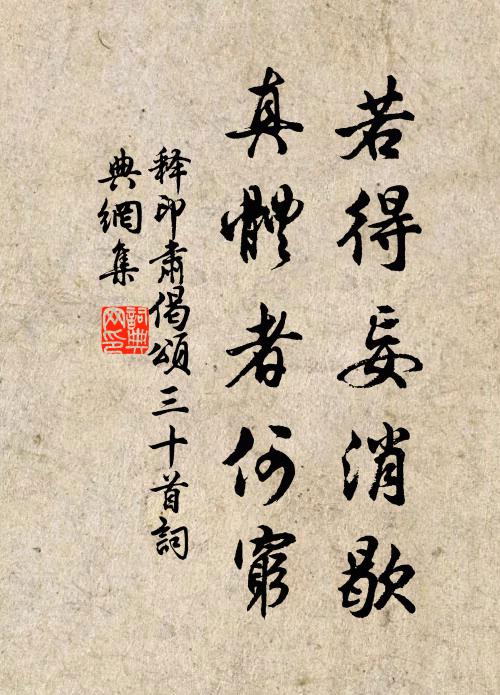 若得妄消歇
真體者何窮
释印肅偈頌三十首詞
典網集
詞典網印